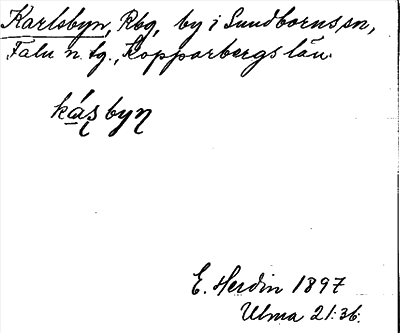 Karlsbyn, Rbg, by i Sundborns sn,
Falu n. tg., Kopparbergs län.
kás̨byn
E. Herdin 1897
Ulma 21:36.